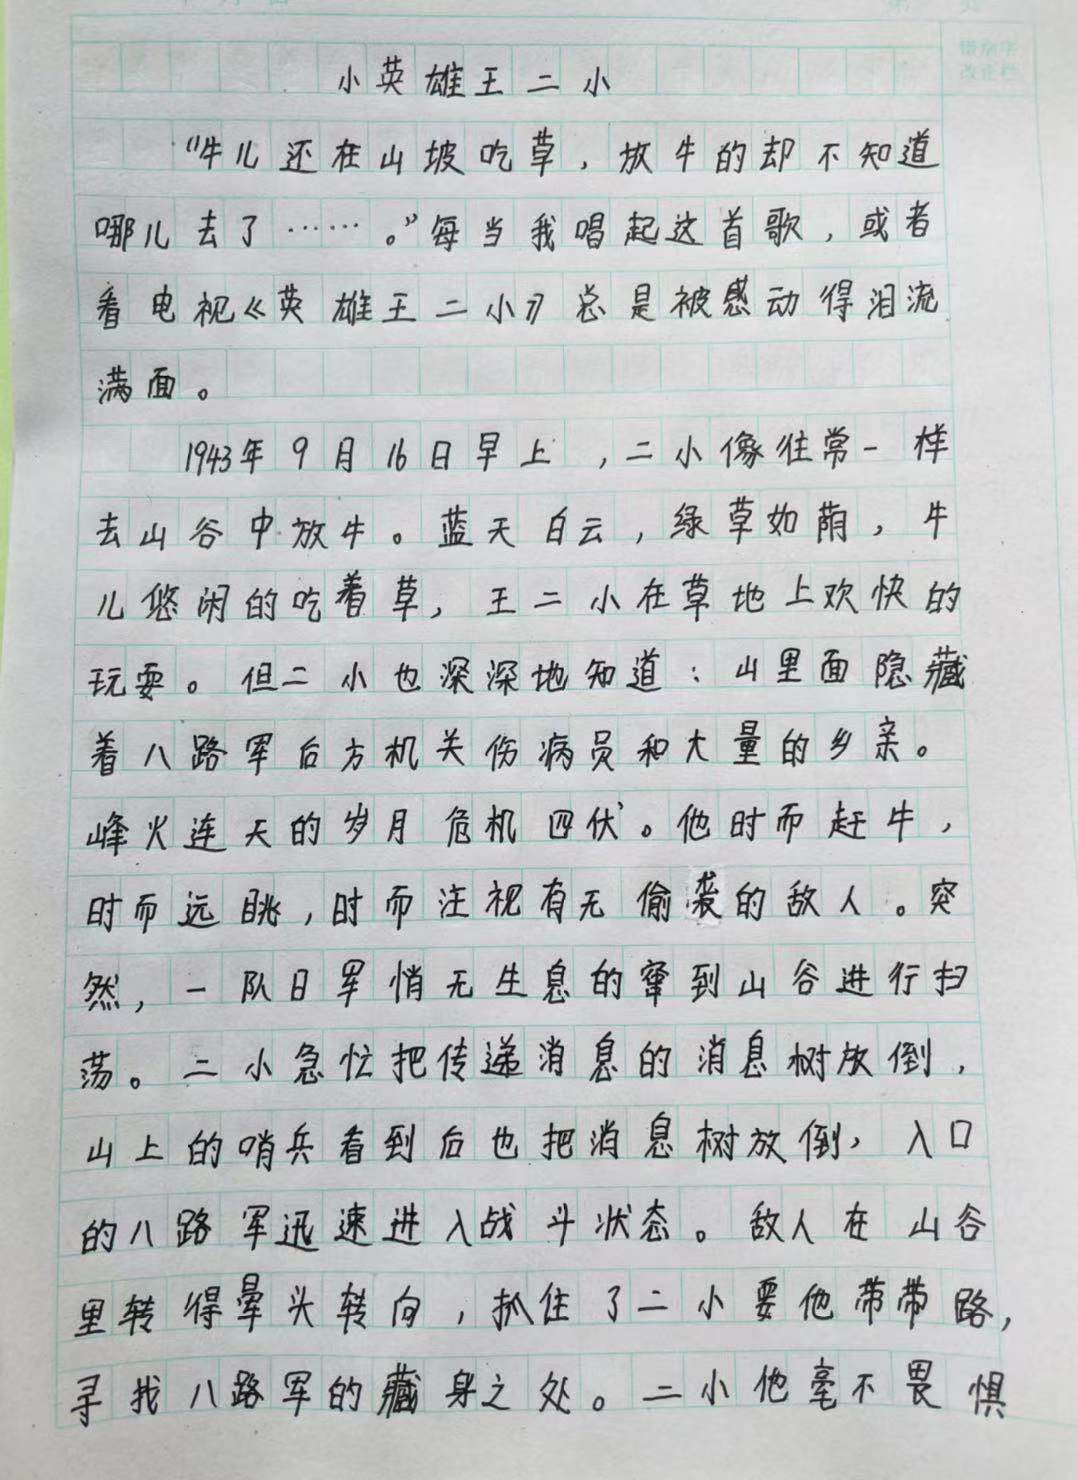 小英雄王二小
“牛儿还在山坡吃草，放牛的却不知道
哪儿去了……。”每当我唱起这首歌，或者
看电视《英雄王二小》总是被感动得泪流
满面。
1943年9月16日早上，二小像往常一样
去山谷中放牛。蓝天白云，绿草如荫，牛
儿悠闲的吃着草，王二小在草地上欢快的
玩耍。但二小也深深地知道：山里面隐藏
着八路军后方机关伤病员和大量的乡亲。
峰火连天的岁月危机四伏。他时而赶牛，
时而远眺，时而注视有无偷袭的敌人。突
然，一队日军悄无生息的窜到山谷进行扫
荡。二小急忙把传递消息的消息树放倒，
山上的哨兵看到后也把消息树放倒，入口
的八路军迅速进入战斗状态。敌人在山谷
里转得晕头转向，抓住了二小要他带带路，
寻找八路军的藏身之处。二小他毫不畏惧